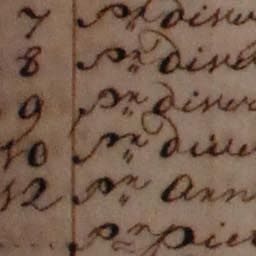 7 Pr diver
8 Pr dive
9 Pr diver
10 Pr dive
12 Pr Ann
Pr Pie